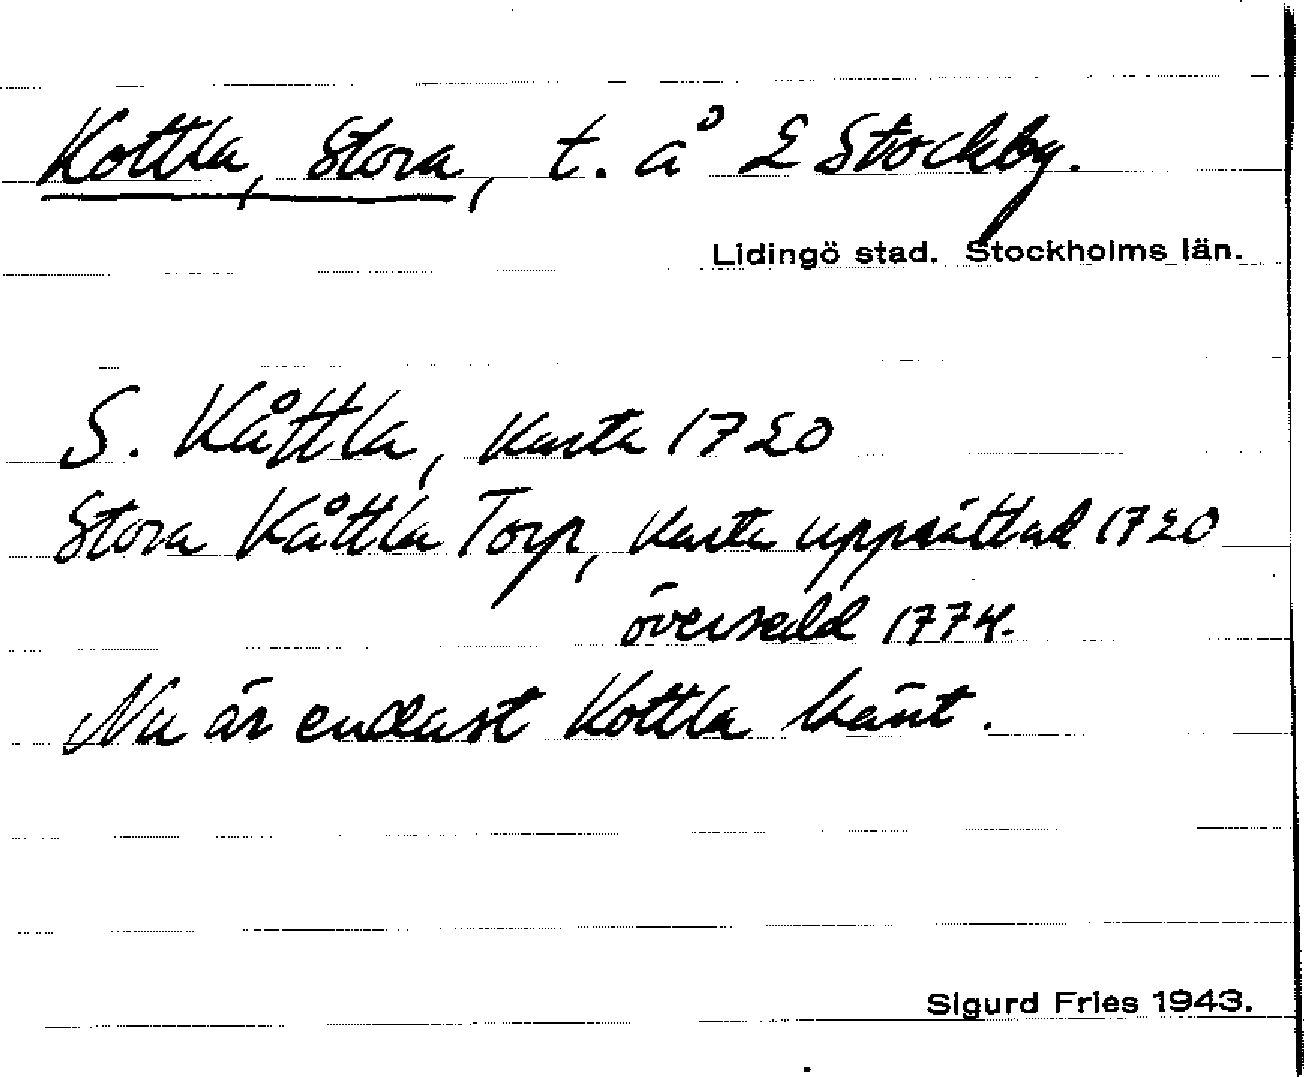 Kottla, Stora, t. å 2 Stockby.
Lidingö stad. Stockholms län.
S. Kåttla, karta 1720
Stora Kåttla Torp, karta upprättad 1720
översedd 1774.
Nu är endast Kottla känt.
Sigurd Fries 1943.